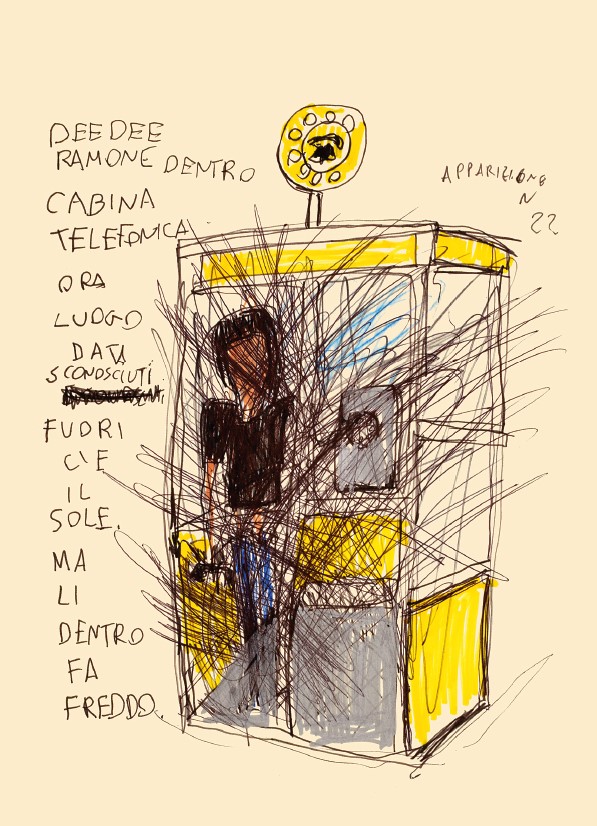 DEE DEE
RAMONE DENTRO
CABINA
TELEFONICA
ORA
LUOGO
DATA
SCONOSCIUTI
FUORI
C'E
IL
SOLE.
MA
LI
DENTRO
FA
FREDDO.
APPARIZIONE
N
22